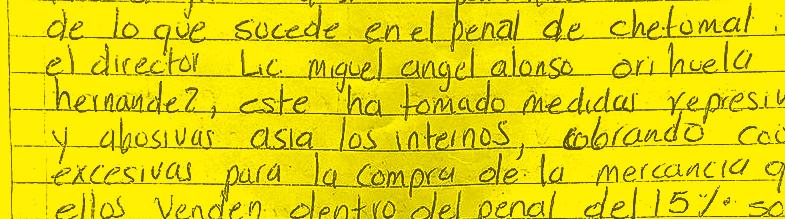 de lo que sucede en el penal de chetumal.
el director Lic. miguel angel alonso orihuela
hernandez, este ha tomado medidas represiv
y abosivas asia los internos, cobrando
excesivas para la compra de la mercancia q
ellos venden dentro del penal del 15% so